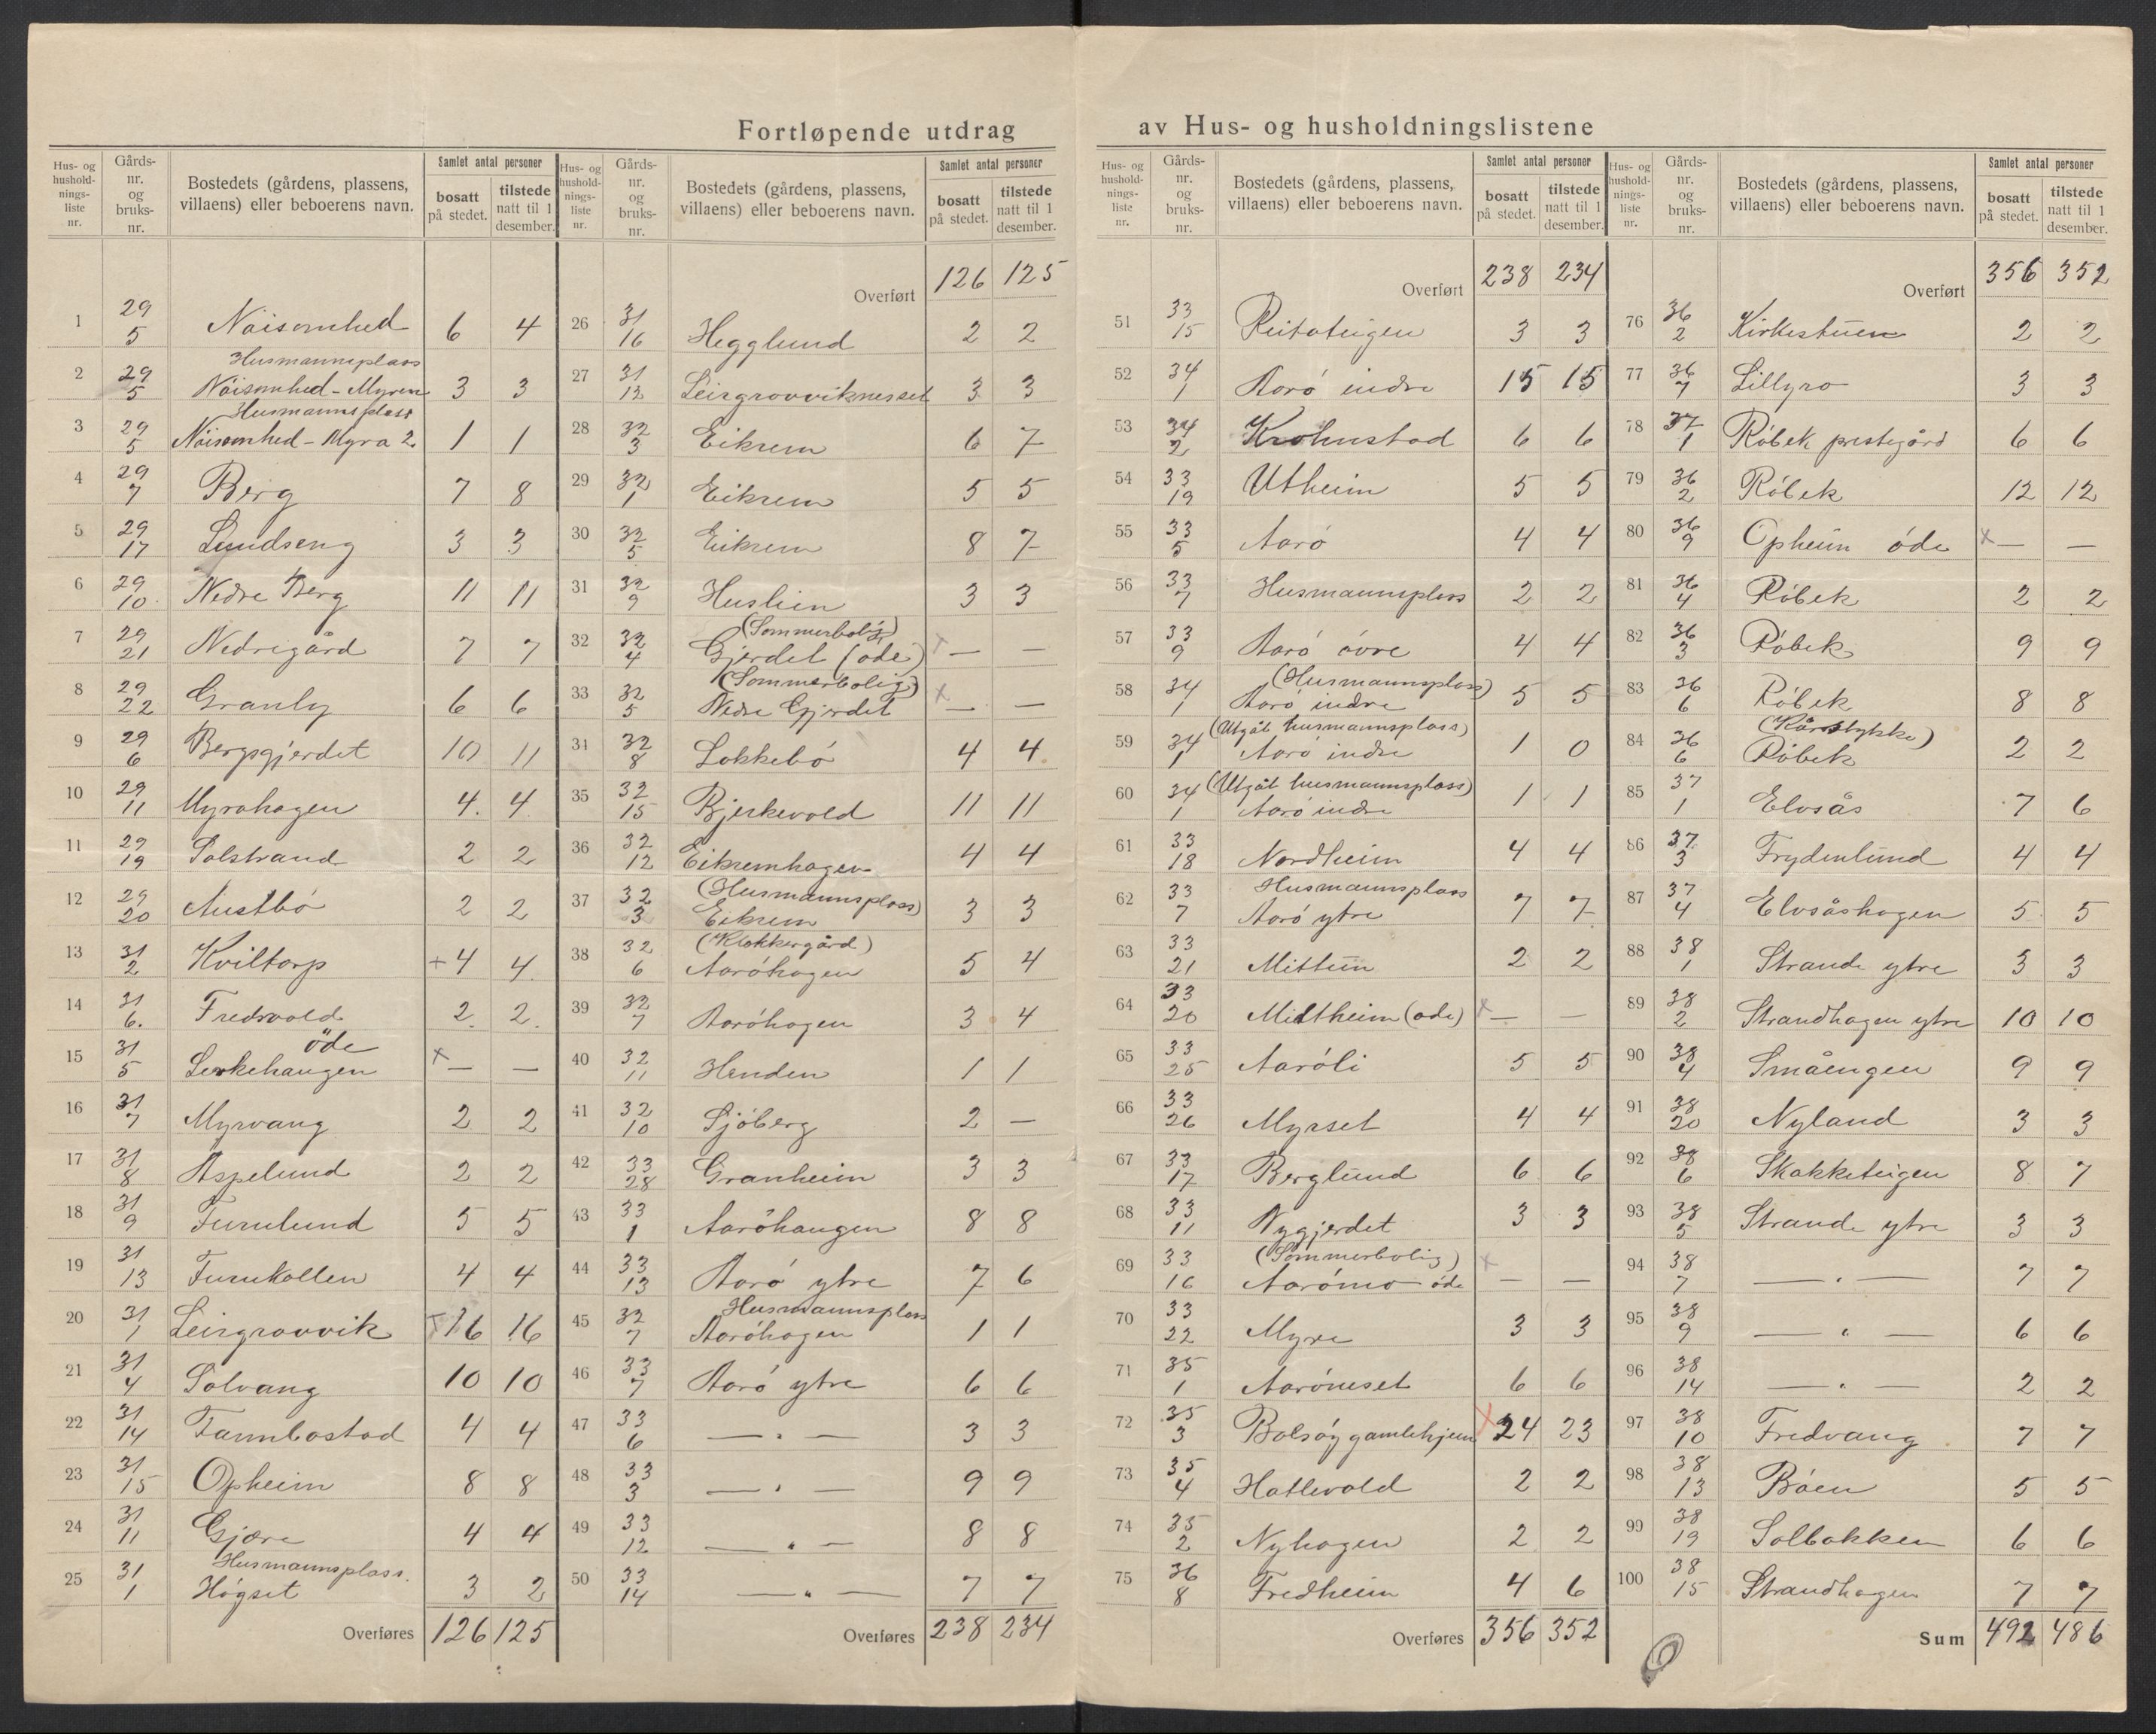 Fortløpende utdrag av Hus- og husholdningslistene
Hus- og husholdningsliste nr. | Gårds-nr. og bruks-nr. | Bostedets (gårdens, plassens, villaens) eller beboerens navn. | Samlet antal personer bosatt på stedet. | tilstede natt til 1 desember.
1 29/5 Nöisomhed 6 4
2 29/5 Husmannsplass Nöisomhed - Myren 3 3
3 29/5 Husmannsplass Nöisomhed - Myra 2. 1 1
4 29/7 Berg 7 8
5 29/17 Lundseng 3 3
6 29/10 Nedre Berg 11 11
7 29/21 Nedregård 7 7
8 29/22 Granly 6 6
9 29/6 Bergsgjerdet 10 11
10 29/11 Myrahagen 4 4
11 29/19 Solstrand 2 2
12 29/20 Austbö 2 2
13 31/2 Kviltorp + 4 4
14 31/6 Fredsvold 2 2
15 31/5 Lerkehaugen öde x — —
16 31/7 Myrvang 2 2
17 31/8 Aspelund 2 2
18 31/9 Furulund 5 5
19 31/13 Furukollen 4 4
20 31/1 Leirgrovvik + 16 16
21 31/4 Solvang 10 10
22 31/14 Fannbostad 4 4
23 31/15 Opheim 8 8
24 31/11 Gjære 4 4
25 31/1 Husmannsplass. Högset 3 2
Overføres 126 125
Hus- og husholdningsliste nr. | Gårds-nr. og bruks-nr. | Bostedets (gårdens, plassens, villaens) eller beboerens navn. | Samlet antal personer bosatt på stedet. | tilstede natt til 1 desember.
Overført 126 125
26 31/16 Hegglund 2 2
27 31/12 Leirgrovviknesset 3 3
28 32/3 Eikrem 6 7
29 32/1 Eikrem 5 5
30 32/5 Eikrem 8 7
31 32/9 Huslien 3 3
32 32/4 (Sommerbolig) Gjerdet (öde) + — —
33 32/5 (Sommerbolig) Nedre Gjerdet x — —
34 32/8 Lokkebö 4 4
35 32/15 Bjerkevold 11 11
36 32/12 Eikremhagen 4 4
37 32/3 (Husmannsplass) Eikrem 3 3
38 32/6 (Klokkergård) Aaröhagen 5 4
39 32/7 Aaröhagen 3 4
40 32/11 Henden 1 1
41 32/10 Sjöberg 2 —
42 33/28 Granheim 3 3
43 33/1 Aaröhaugen 8 8
44 33/13 Aarö ytre 7 6
45 32/7 Husmannsplass Aaröhagen 1 1
46 33/7 Aarö ytre 6 6
47 33/6 — " — 3 3
48 33/3 — " — 9 9
49 33/12 — " — 8 8
50 33/14 — " — 7 7
Overføres 238 234
Hus- og husholdningsliste nr. | Gårds-nr. og bruks-nr. | Bostedets (gårdens, plassens, villaens) eller beboerens navn. | Samlet antal personer bosatt på stedet. | tilstede natt til 1 desember.
Overført 238 234
51 33/15 Reitateigen 3 3
52 34/1 Aarö indre 15 15
53 34/2 Krohnstad 6 6
54 33/19 Utheim 5 5
55 33/5 Aarö 4 4
56 33/7 Husmannsplass 2 2
57 33/9 Aarö övre 4 4
58 34/1 (Husmannsplass) Aarö indre 5 5
59 34/1 (Utgåt husmannsplass) Aarö indre 1 0
60 34/1 (Utgåt husmannsplass) Aarö indre 1 1
61 33/18 Nordheim 4 4
62 33/7 Husmannsplass Aarö ytre 7 7
63 33/21 Mittun 2 2
64 33/20 Midtheim (öde) x — —
65 33/25 Aaröli 5 5
66 33/26 Myrset 4 4
67 33/17 Berglund 6 6
68 33/11 Nygjerdet 3 3
69 33/16 (Sommerbolig) Aarömo öde x — —
70 33/22 Myre 3 3
71 35/1 Aaröneset 6 6
72 35/3 Bolsöy gamlehjem x 24 23
73 35/4 Hatlevold 2 2
74 35/2 Nyhagen 2 2
75 36/8 Fredheim 4 6
Overføres 356 352
Hus- og husholdningsliste nr. | Gårds-nr. og bruks-nr. | Bostedets (gårdens, plassens, villaens) eller beboerens navn. | Samlet antal personer bosatt på stedet. | tilstede natt til 1 desember.
Overført 356 352
76 36/2 Kirkestuen 2 2
77 36/7 Lillyro 3 3
78 37/1 Röbek prestegård 6 6
79 36/2 Röbek 12 12
80 36/9 Opheim öde x — —
81 36/4 Röbek 2 2
82 36/3 Röbek 9 9
83 36/6 Röbek 8 8
84 36/6 (Kårstykke) Röbek 2 2
85 37/1 Elvsås 7 6
86 37/3 Frydenlund 4 4
87 37/4 Elvsåshagen 5 5
88 38/1 Strande ytre 3 3
89 38/2 Strandhagen ytre 10 10
90 38/4 Småengen 9 9
91 38/20 Nyland 3 3
92 38/6 Skakketeigen 8 7
93 38/5 Strande ytre 3 3
94 38/7 — " — 7 7
95 38/9 — " — 6 6
96 38/14 — " — 2 2
97 38/10 Fredvang 7 7
98 38/13 Böen 5 5
99 38/19 Solbakken 6 6
100 38/15 Strandhagen 7 7
Sum 492 486